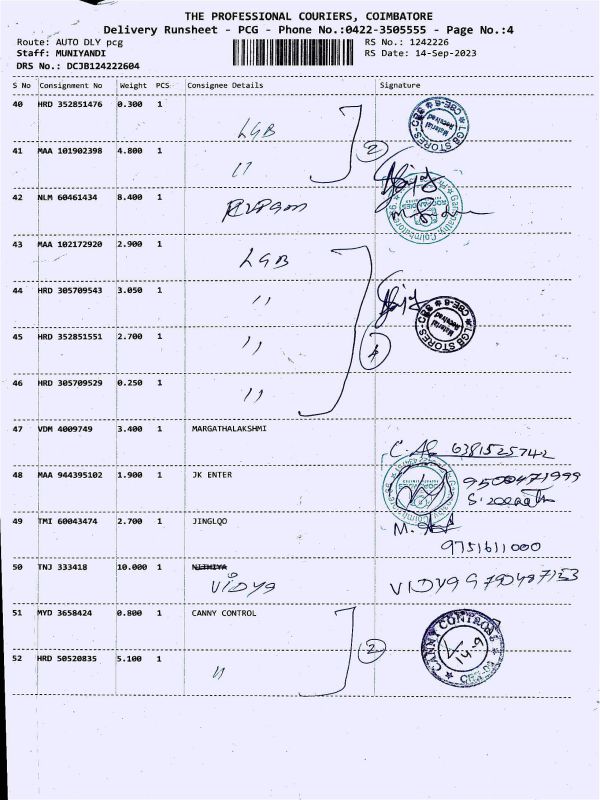 THE PROFESSIONAL COURIERS, COIMBATORE
Delivery Runsheet - PCG - Phone No.:0422-3505555 - Page No.:4
Route: AUTO DLY pcg RS No.: 1242226
Staff: MUNIYANDI RS Date: 14-Sep-2023
DRS No.: DCJB124222604
S No Consignment No Weight PCS Consignee Details Signature
40 HRD 352851476 0.300 1 LGB
LGB STORES-CBE-6 Material Received
41 MAA 101902398 4.800 1 "
2
42 NLM 60461434 8.400 1
43 MAA 102172920 2.900 1 LGB
44 HRD 305709543 3.050 1 "
LGB STORES-CBE-6 Material Received
45 HRD 352851551 2.700 1 "
4
46 HRD 305709529 0.250 1 "
47 VDM 4009749 3.400 1 MARGATHALAKSHMI
6381525742
48 MAA 944395102 1.900 1 JK ENTER
9500471999
49 TMI 60043474 2.700 1 JINGLQO
9751611000
50 TNJ 333418 10.000 1 NITHIYA
VIDYA VIDYA
51 MYD 3658424 0.800 1 CANNY CONTROL
CANNY CONTROLS
14.9
2
52 HRD 50520835 5.100 1 "